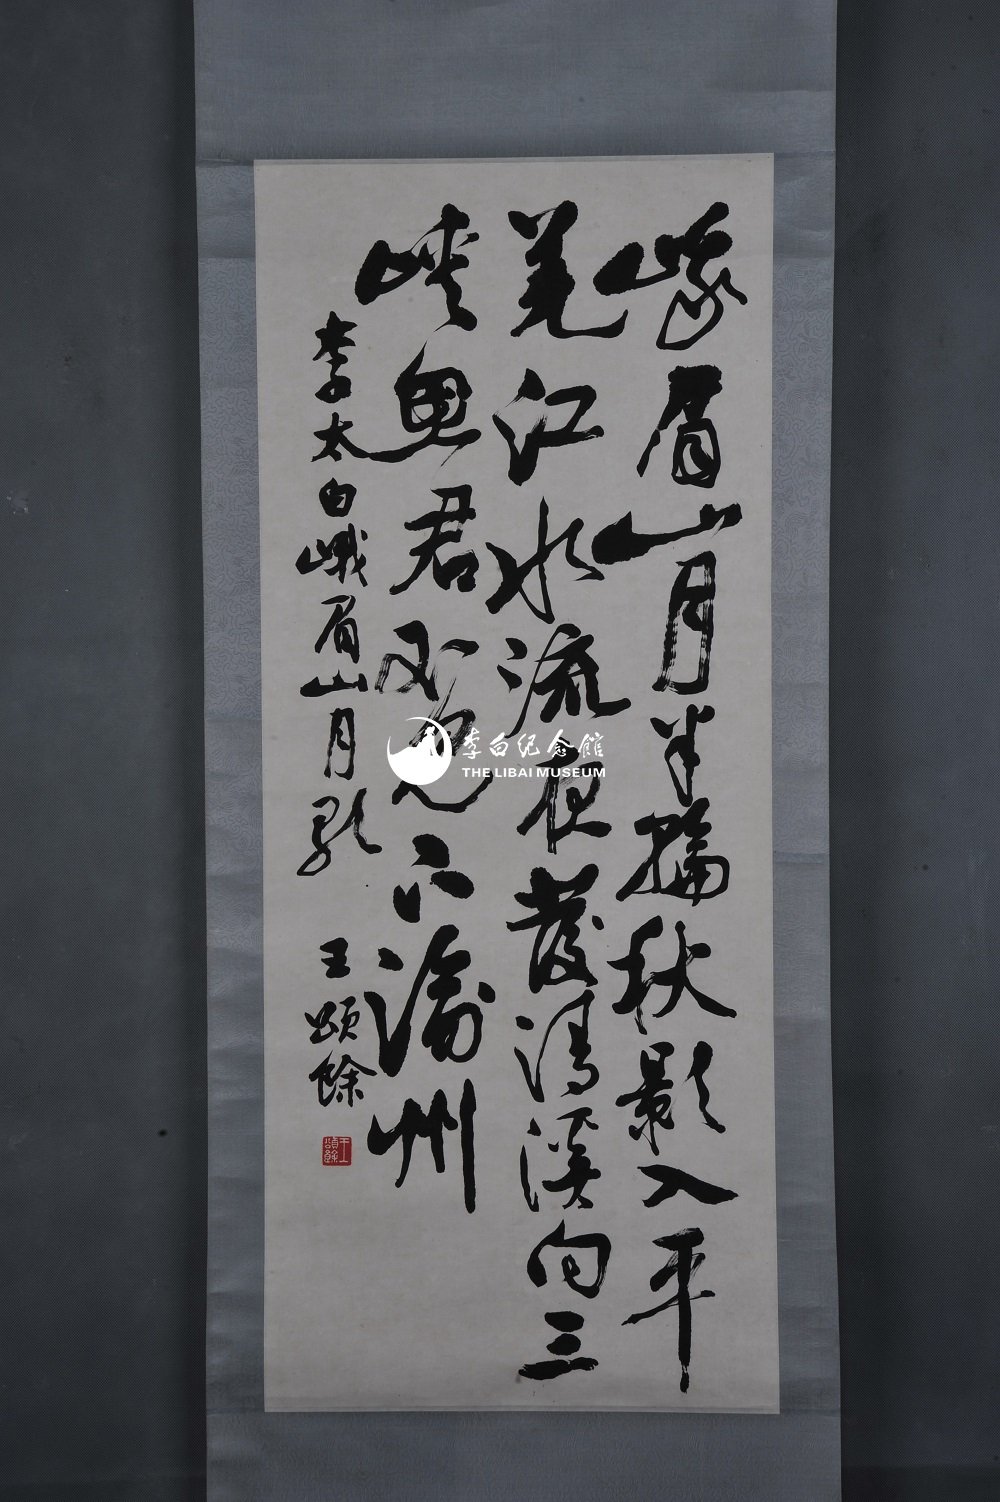 峨眉山月半轮秋影入平
羌江水流夜发清溪向三
峡思君不见下渝州
李太白峨眉山月歌
王颂馀
王頌餘
李白纪念馆
THE LIBAI MUSEUM